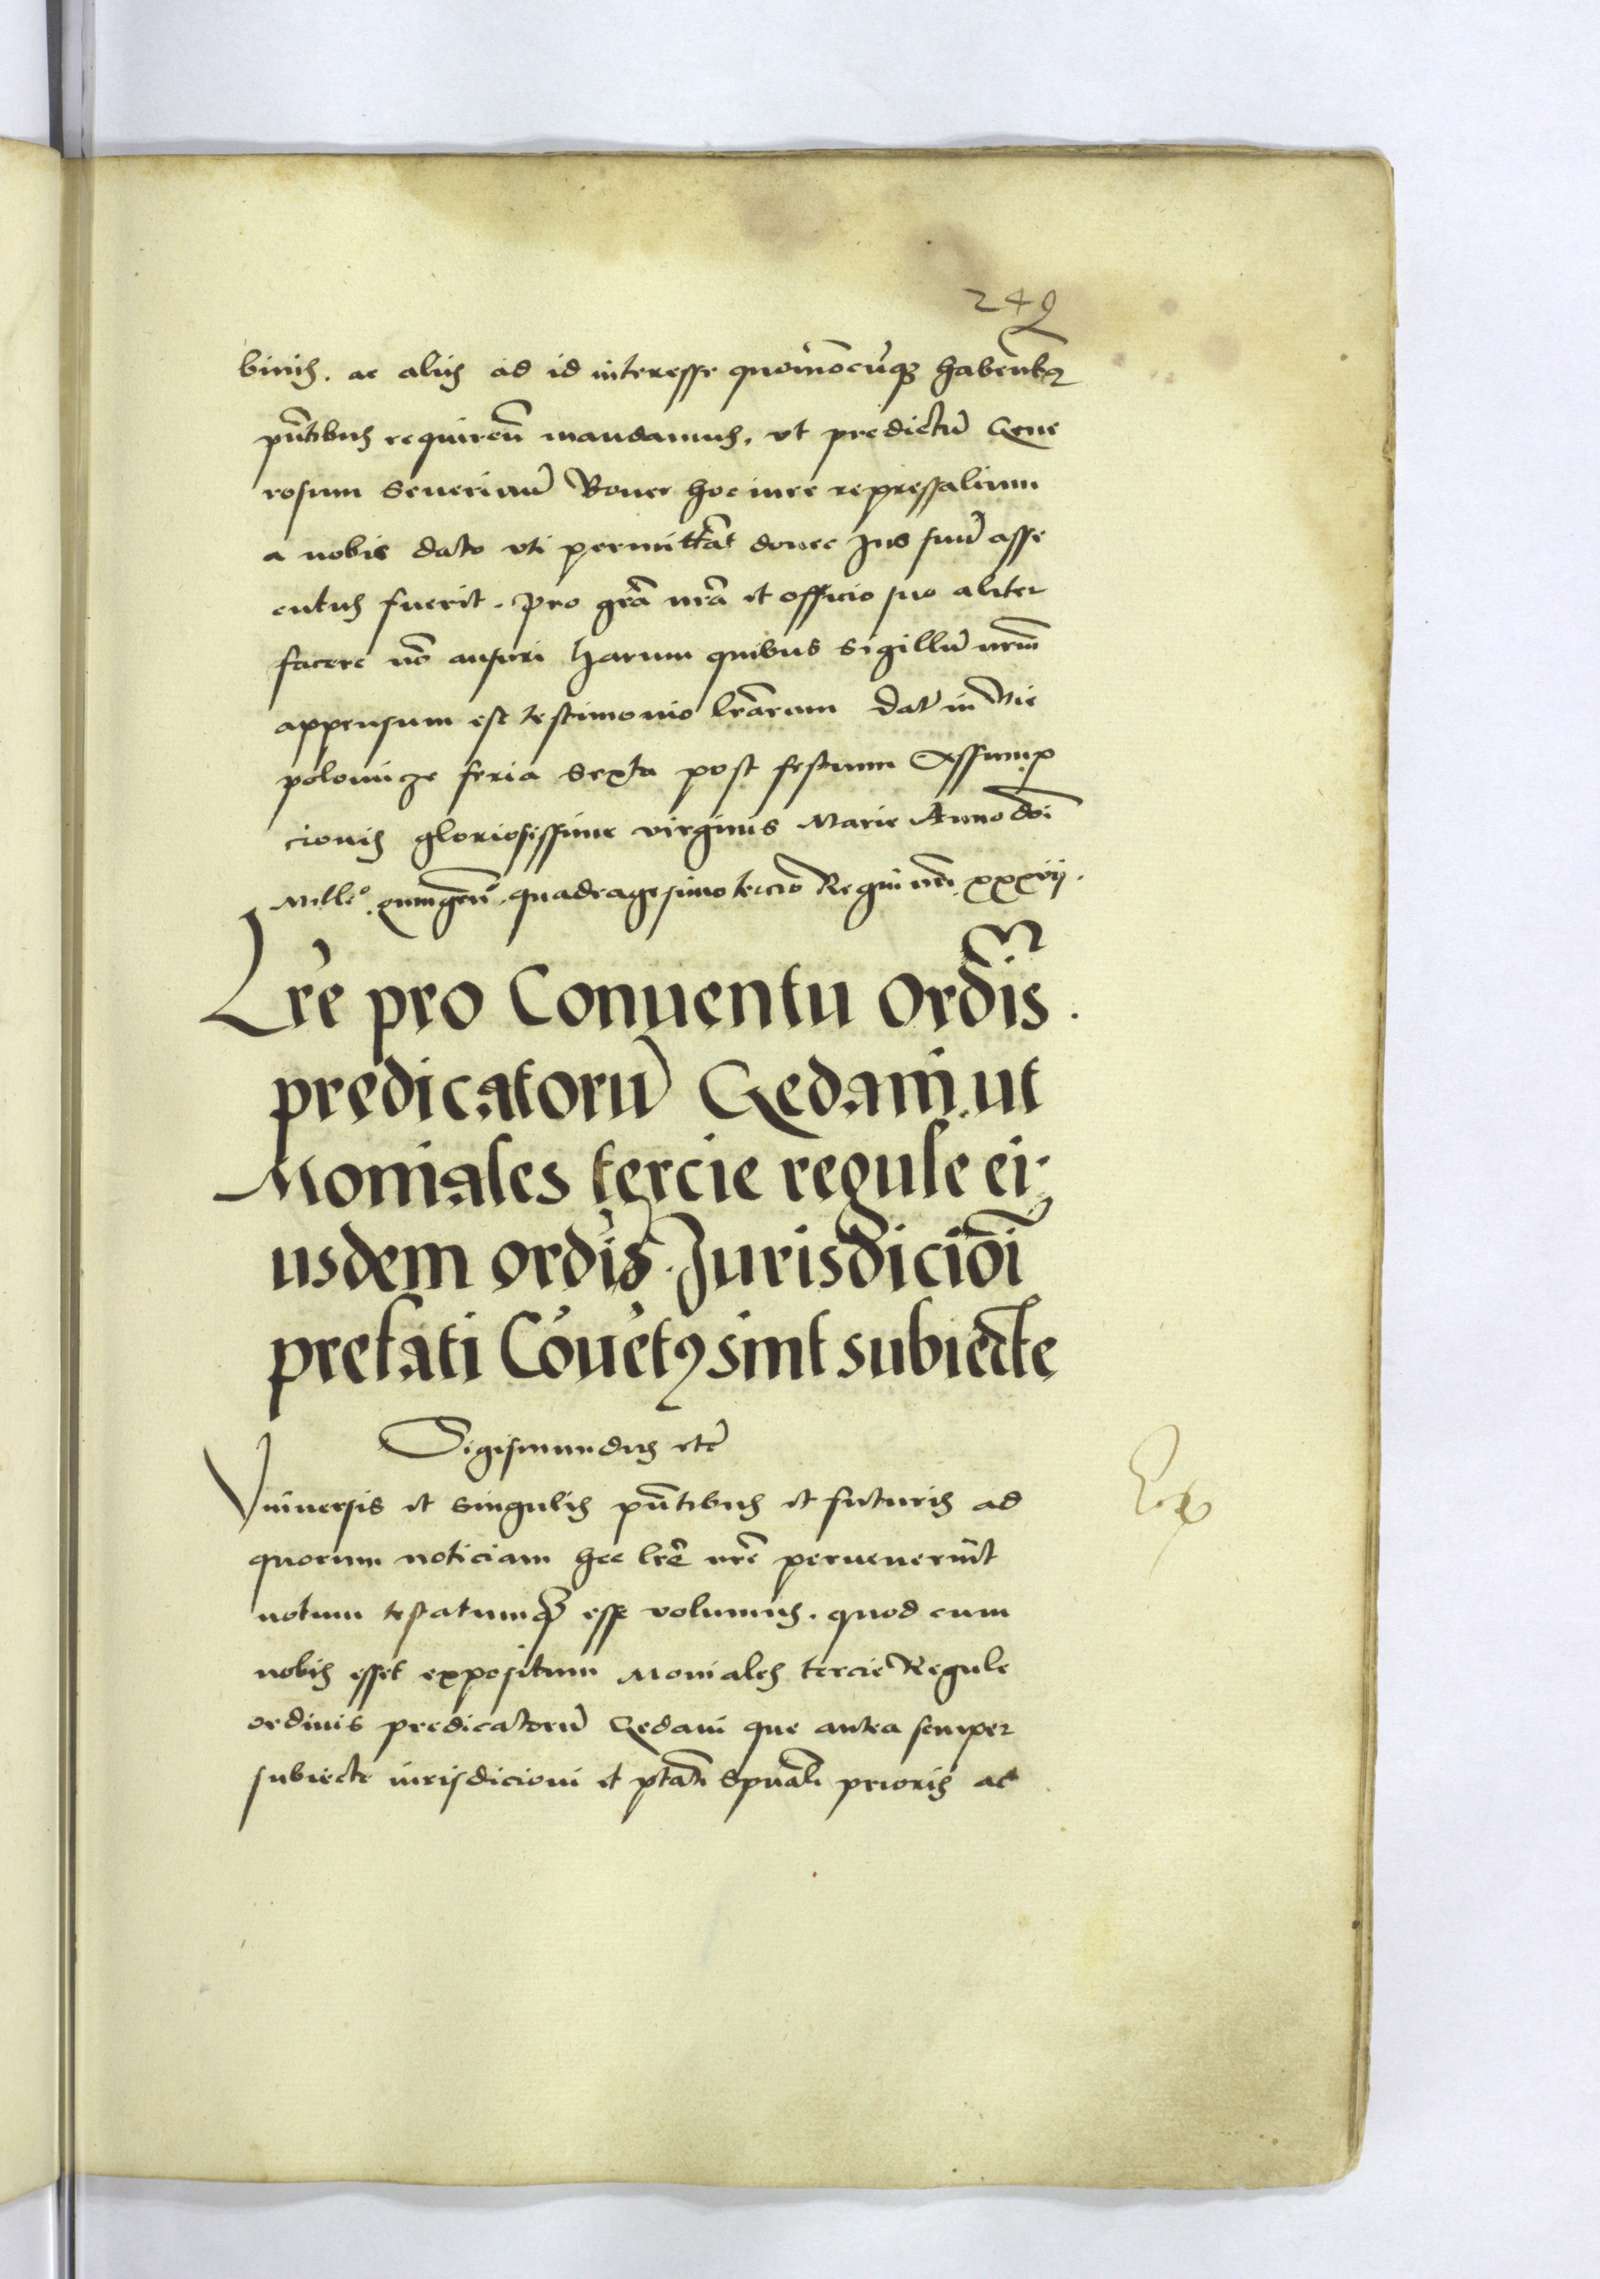 249
binis. ac aliis ad id interesse quomōcūqꝫ habentibꝫ
pn̄tibus requiren̄ mandamus, vt predictū Gene
rosum Seuerinū Boner hoc iure repressalium
a nobis dato vti permittāt donec Jus suū asse
cutus fuerit. pro grā nrā et officio suo aliter
facere nō ausuri harum quibus Sigillū nrm̄
appensum est testimonio lrārum dat̄ in Nie
polomicze feria Sexta post festum Assump
cionis gloriosissime virginis Marie Anno doī
Mill̄o quingen̄ quadragesimo tercio Regni nrī xxxvij.
Lr̄e pro Conuentu Ordīs.
predicatorū Gedani ut
Moniales tercie regule ei.
usdem ordīs. Jurisdiciōī
prefati Cōuētꝰ sint subiecte
Sigismundus etc̄
Vniuersis et singulis pn̄tibus et futuris ad
quorum noticiam hec lrē nrē peruenerint
notum testatumqꝫ esse volumus. quod cum
nobis esset expositum Moniales tercie Regule
ordinis predicatorū Gedani que antea semper
subiecte iurisdicioni et ptāti Spūali prioris ac